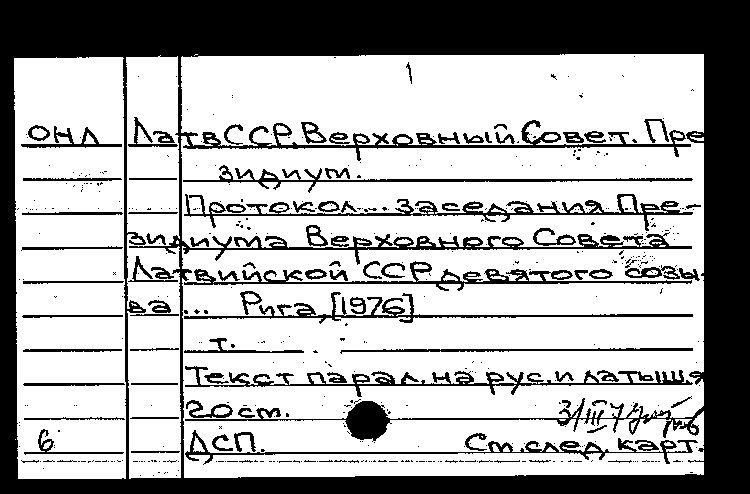 1
ОНЛ ЛатвССР. Верховный Совет. Пре
зидиум.
Протокол... заседания Пре-
зидиума Верховного Совета
Латвийской ССР девятого созы-
ва... Рига, [1976]
т.
Текст парал. на рус. и латыш. я
20 ст.
3/III 7
6 ДСП. См. след. карт.